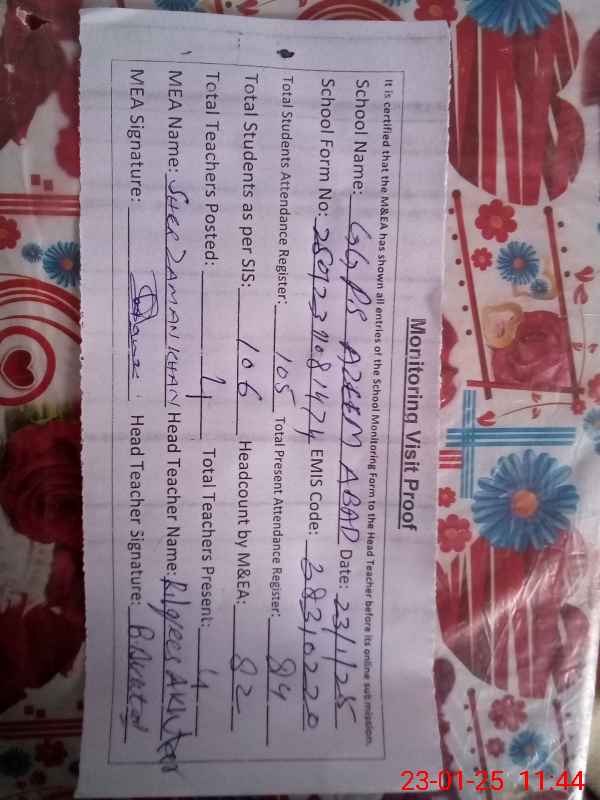 Monitoring Visit Proof
It is certified that the M&EA has shown all entries of the School Monitoring Form to the Head Teacher before its online submission.
School Name: GGPS AZEEM ABAD Date: 23/1/25
School Form No: EMIS Code: 38310220
Total Students Attendance Register: 105 Total Present Attendance Register: 84
Total Students as per SIS: 106 Headcount by M&EA: 82
Total Teachers Posted: 4 Total Teachers Present: 4
MEA Name: SHER ZAMAN KHAN Head Teacher Name: Bilqees Akhtar
MEA Signature: Head Teacher Signature:
23-01-25 11:44